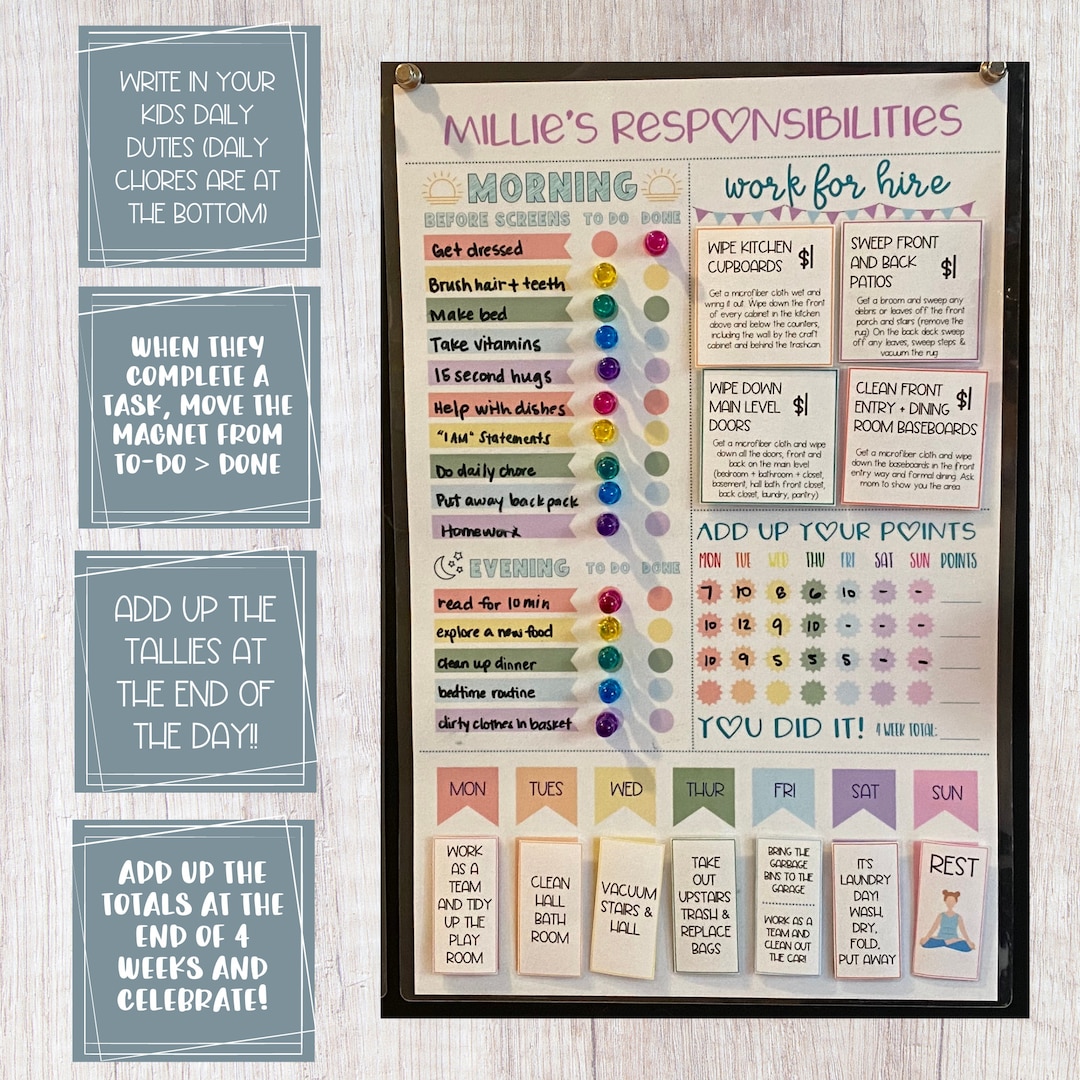 WRITE IN YOUR
KIDS DAILY
DUTIES (DAILY
CHORES ARE AT
THE BOTTOM)
WHEN THEY
COMPLETE A
TASK, MOVE THE
MAGNET FROM
TO-DO > DONE
ADD UP THE
TALLIES AT
THE END OF
THE DAY!!
ADD UP THE
TOTALS AT THE
END OF 4
WEEKS AND
CELEBRATE!
MILLIE'S RESPONSIBILITIES
MORNING
BEFORE SCREENS TO DO DONE
Get dressed
Brush hair + teeth
Make bed
Take vitamins
15 second hugs
Help with dishes
"I AM" Statements
Do daily chore
Put away backpack
Homework
EVENING TO DO DONE
read for 10 min
explore a new food
clean up dinner
bedtime routine
dirty clothes in basket
work for hire
WIPE KITCHEN
CUPBOARDS $1
Get a microfiber cloth wet and
wring it out. Wipe down the front
of every cabinet in the kitchen
above and below the counters,
including the wall by the craft
cabinet and behind the trashcan.
SWEEP FRONT
AND BACK $1
PATIOS
Get a broom and sweep any
debris or leaves off the front
porch and stairs (remove the
rug). On the back deck sweep
off any leaves, sweep steps &
vacuum the rug
WIPE DOWN
MAIN LEVEL $1
DOORS
Get a microfiber cloth and wipe
down all the doors, front and
back on the main level
(bedroom + bathroom + closet,
basement, hall bath front closet,
back closet, laundry, pantry)
CLEAN FRONT
ENTRY + DINING $1
ROOM BASEBOARDS
Get a microfiber cloth and wipe
down the baseboards in the front
entry way and formal dining. Ask
mom to show you the area.
ADD UP YOUR POINTS
MON TUE WED THU FRI SAT SUN POINTS
7 10 8 6 10 - -
10 12 9 10 - - -
10 9 5 5 5 - -
YOU DID IT! 4 WEEK TOTAL:
MON TUES WED THUR FRI SAT SUN
WORK
AS A
TEAM
AND TIDY
UP THE
PLAY
ROOM
CLEAN
HALL
BATH
ROOM
VACUUM
STAIRS &
HALL
TAKE
OUT
UPSTAIRS
TRASH &
REPLACE
BAGS
BRING THE
GARBAGE
BINS TO THE
GARAGE
WORK AS A
TEAM AND
CLEAN OUT
THE CAR!
IT'S
LAUNDRY
DAY!
WASH,
DRY,
FOLD,
PUT AWAY
REST